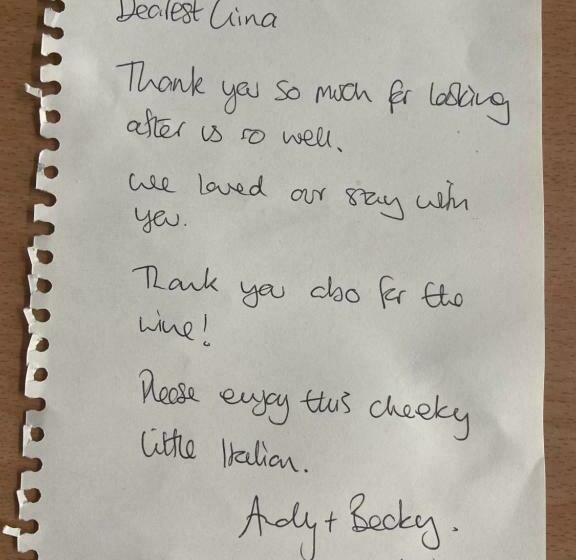 Dearest Gina
Thank you so much for looking
after us so well.
We loved our stay with
you.
Thank you also for the
wine!
Please enjoy this cheeky
little Italian.
Andy + Becky.